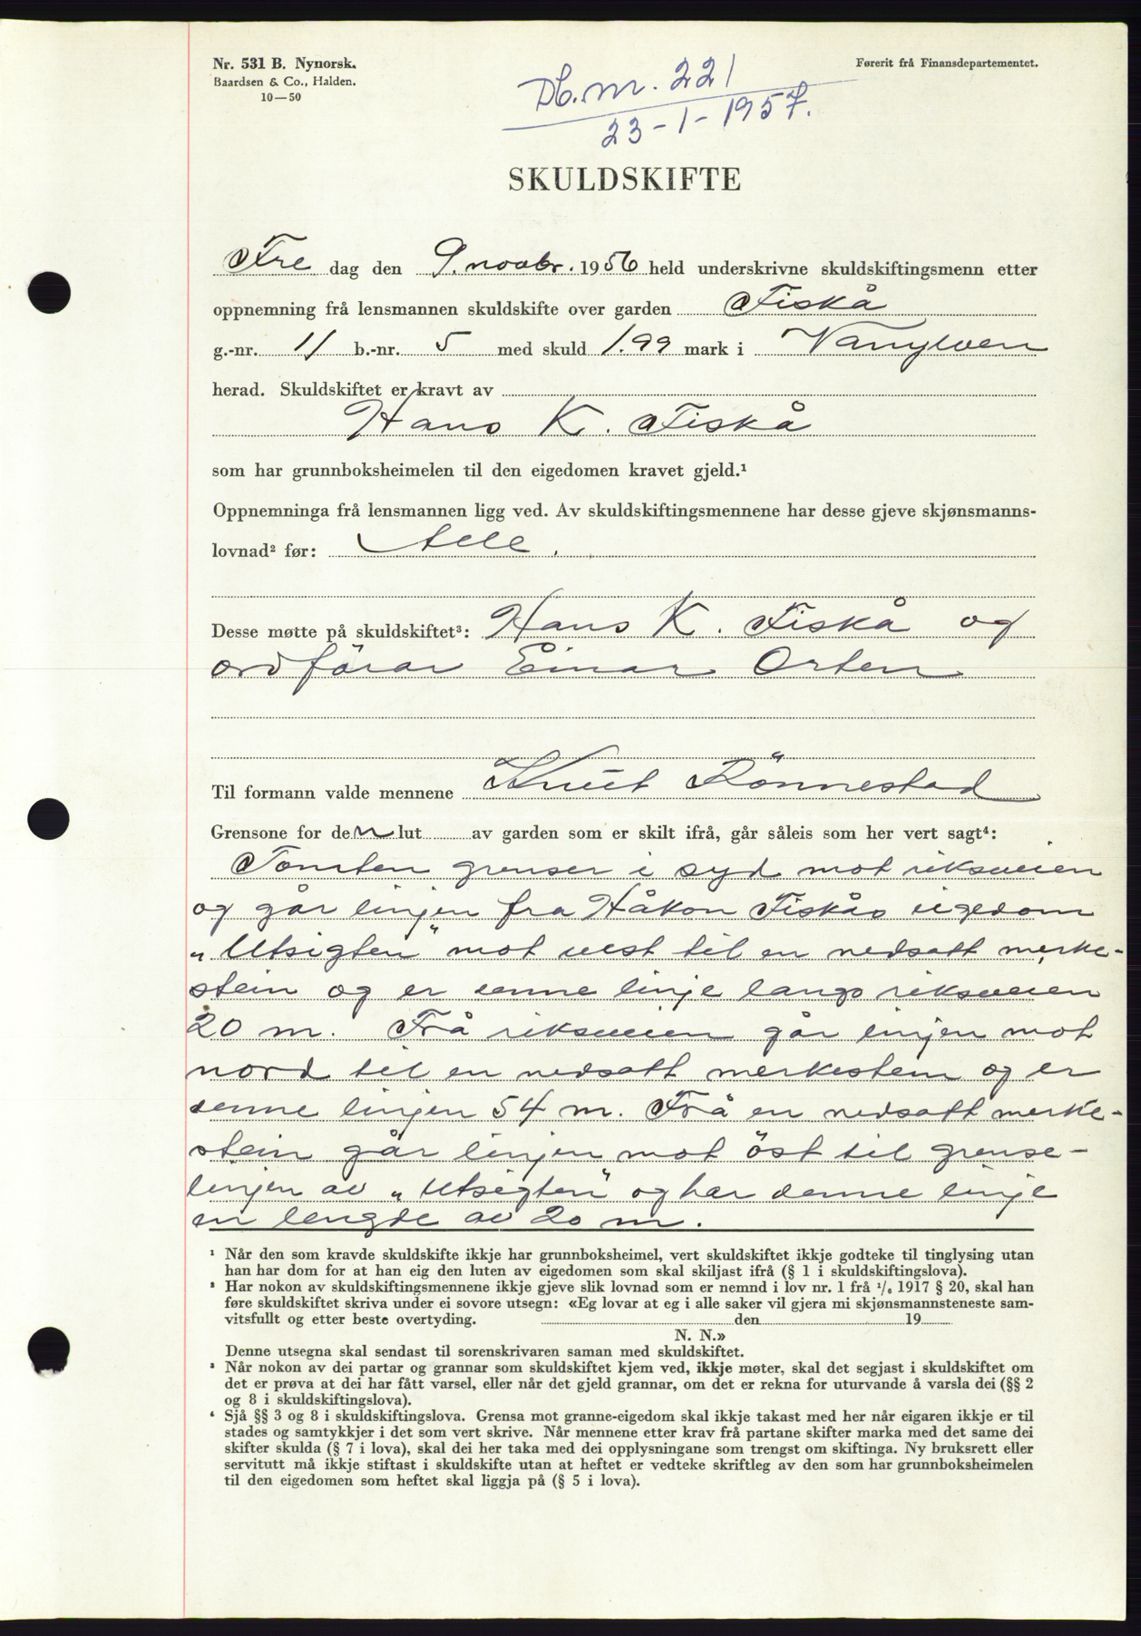 Nr. 531 B. Nynorsk.
Baardsen & Co., Halden.
10—50
Førerit frå Finansdepartementet.
Db. nr. 221
23-1-1957.
SKULDSKIFTE
Fre dag den 9. novbr. 1956 held underskrivne skuldskiftingsmenn etter
oppnemning frå lensmannen skuldskifte over garden Fiskå
g.-nr. 11 b.-nr. 5 med skuld 1.99 mark i Vanylven
herad. Skuldskiftet er kravt av
Hans K. Fiskå
som har grunnboksheimelen til den eigedomen kravet gjeld.¹
Oppnemninga frå lensmannen ligg ved. Av skuldskiftingsmennene har desse gjeve skjønsmanns-
lovnad² før: Alle.
Desse møtte på skuldskiftet³: Hans K. Fiskå og
ordförar Einar Orten
Til formann valde mennene Knut Rönnestad
Grensone for den lut av garden som er skilt ifrå, går såleis som her vert sagt⁴:
Tomten grenser i syd mot riksveien
og går linjen fra Håkon Fiskås eigedom
„Utsigten" mot vest til en nedsatt merke-
stein og er denne linje langs riksveien
20 m. Frå riksveien går linjen mot
nord til en nedsatt merkestein og er
denne linjen 54 m. Frå en nedsatt merke-
stein går linjen mot öst til grense-
linjen av „Utsigten" og har denne linje
en lengde av 20 m.
¹ Når den som kravde skuldskifte ikkje har grunnboksheimel, vert skuldskiftet ikkje godteke til tinglysing utan
han har dom for at han eig den luten av eigedomen som skal skiljast ifrå (§ 1 i skuldskiftingslova).
² Har nokon av skuldskiftingsmennene ikkje gjeve slik lovnad som er nemnd i lov nr. 1 frå ¹/₆ 1917 § 20, skal han
føre skuldskiftet skriva under ei sovore utsegn: «Eg lovar at eg i alle saker vil gjera mi skjønsmannsteneste sam-
vitsfullt og etter beste overtyding. den 19
N. N.»
Denne utsegna skal sendast til sorenskrivaren saman med skuldskiftet.
³ Når nokon av dei partar og grannar som skuldskiftet kjem ved, ikkje møter, skal det segjast i skuldskiftet om
det er prøva at dei har fått varsel, eller når det gjeld grannar, om det er rekna for uturvande å varsla dei (§§ 2
og 8 i skuldskiftingslova).
⁴ Sjå §§ 3 og 8 i skuldskiftingslova. Grensa mot granne-eigedom skal ikkje takast med her når eigaren ikkje er til
stades og samtykkjer i det som vert skrive. Når mennene etter krav frå partane skifter marka med det same dei
skifter skulda (§ 7 i lova), skal dei her taka med dei opplysningane som trengst om skiftinga. Ny bruksrett eller
servitutt må ikkje stiftast i skuldskifte utan at heftet er vedteke skriftleg av den som har grunnboksheimelen
til den eigedomen som heftet skal liggja på (§ 5 i lova).